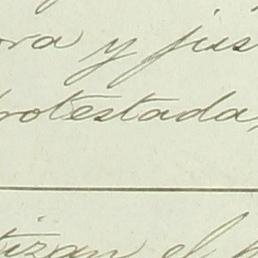 ora y jus
protestada,
tizan el